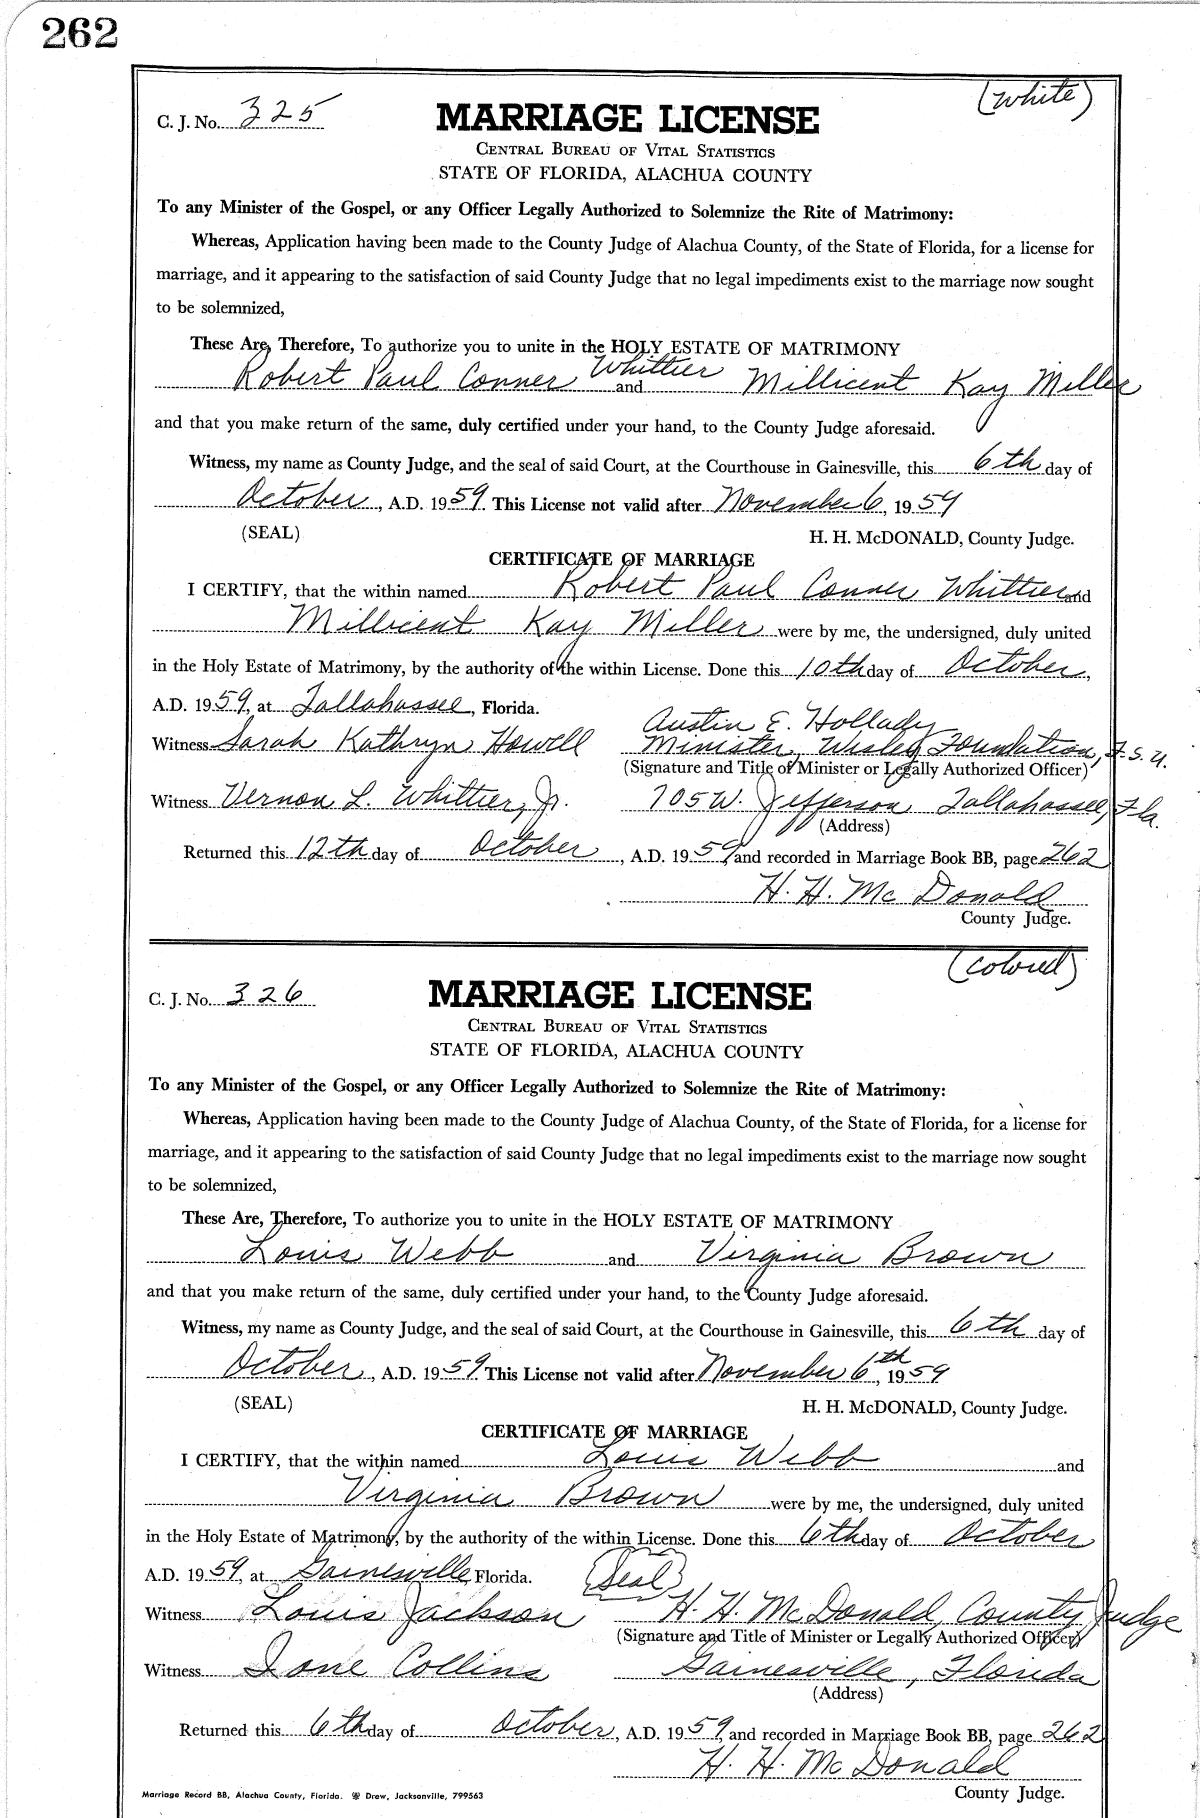 262
(White)
C. J. No. 325
MARRIAGE LICENSE
CENTRAL BUREAU OF VITAL STATISTICS
STATE OF FLORIDA, ALACHUA COUNTY
To any Minister of the Gospel, or any Officer Legally Authorized to Solemnize the Rite of Matrimony:
Whereas, Application having been made to the County Judge of Alachua County, of the State of Florida, for a license for
marriage, and it appearing to the satisfaction of said County Judge that no legal impediments exist to the marriage now sought
to be solemnized,
These Are, Therefore, To authorize you to unite in the HOLY ESTATE OF MATRIMONY
Robert Paul Conner Whittier and Millicent Kay Miller
and that you make return of the same, duly certified under your hand, to the County Judge aforesaid.
Witness, my name as County Judge, and the seal of said Court, at the Courthouse in Gainesville, this 6th day of
October, A.D. 1959. This License not valid after November 6, 1959
(SEAL) H. H. McDONALD, County Judge.
CERTIFICATE OF MARRIAGE
I CERTIFY, that the within named Robert Paul Conner Whittier and
Millicent Kay Miller were by me, the undersigned, duly united
in the Holy Estate of Matrimony, by the authority of the within License. Done this 10th day of October,
A.D. 1959, at Tallahassee, Florida.
Austin E. Hollady
Witness Sarah Kathryn Howell Minister, Wesley Foundation, F.S.U.
(Signature and Title of Minister or Legally Authorized Officer)
Witness Vernon L. Whittier, Jr. 705 W. Jefferson Tallahassee, Fla.
(Address)
Returned this 12th day of October, A.D. 1959 and recorded in Marriage Book BB, page 262
H. H. McDonald
County Judge.
(Colored)
C. J. No. 326
MARRIAGE LICENSE
CENTRAL BUREAU OF VITAL STATISTICS
STATE OF FLORIDA, ALACHUA COUNTY
To any Minister of the Gospel, or any Officer Legally Authorized to Solemnize the Rite of Matrimony:
Whereas, Application having been made to the County Judge of Alachua County, of the State of Florida, for a license for
marriage, and it appearing to the satisfaction of said County Judge that no legal impediments exist to the marriage now sought
to be solemnized,
These Are, Therefore, To authorize you to unite in the HOLY ESTATE OF MATRIMONY
Louis Webb and Virginia Brown
and that you make return of the same, duly certified under your hand, to the County Judge aforesaid.
Witness, my name as County Judge, and the seal of said Court, at the Courthouse in Gainesville, this 6th day of
October, A.D. 1959. This License not valid after November 6th, 1959
(SEAL) H. H. McDONALD, County Judge.
CERTIFICATE OF MARRIAGE
I CERTIFY, that the within named Louis Webb and
Virginia Brown were by me, the undersigned, duly united
in the Holy Estate of Matrimony, by the authority of the within License. Done this 6th day of October
A.D. 1959, at Gainesville, Florida. (Seal)
Witness Louis Jackson H. H. McDonald, County Judge
(Signature and Title of Minister or Legally Authorized Officer)
Witness Ione Collins Gainesville, Florida
(Address)
Returned this 6th day of October, A.D. 1959, and recorded in Marriage Book BB, page 262
H. H. McDonald
County Judge.
Marriage Record BB, Alachua County, Florida. Drew, Jacksonville, 799563